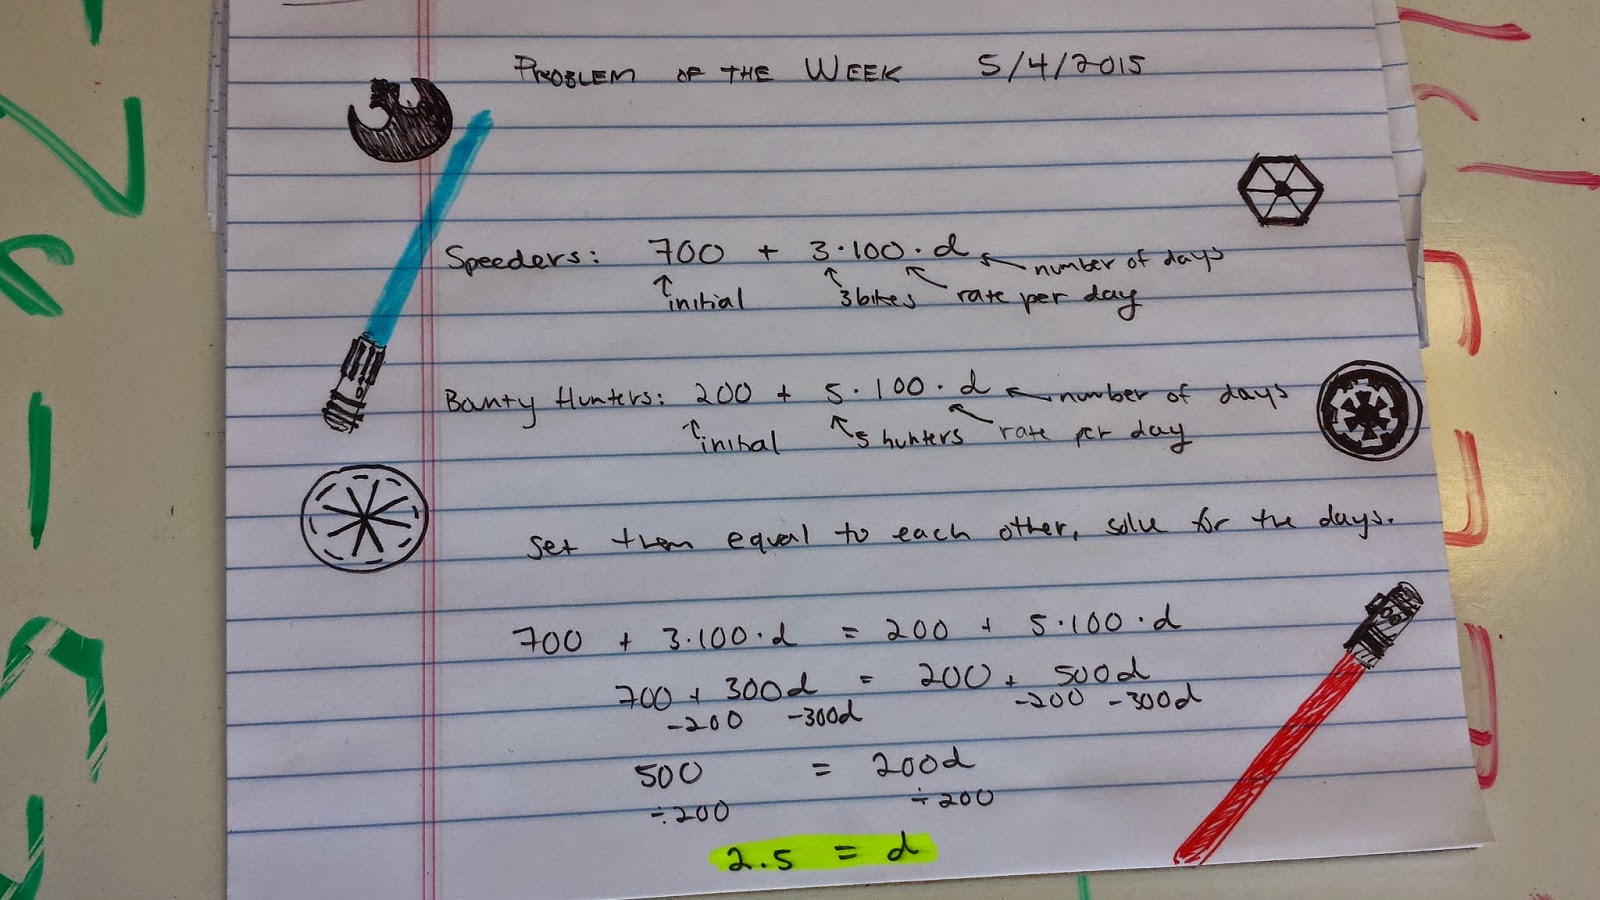 PROBLEM OF THE WEEK 5/4/2015
Speeders: 700 + 3·100·d ← number of days
↑ initial ↑ 3 bikes ↖ rate per day
Bounty Hunters: 200 + 5·100·d ← number of days
↑ initial ↖ 5 hunters ↖ rate per day
Set them equal to each other, solve for the days.
700 + 3·100·d = 200 + 5·100·d
700 + 300d = 200 + 500d
-200 -300d -200 -300d
500 = 200d
÷200 ÷200
2.5 = d